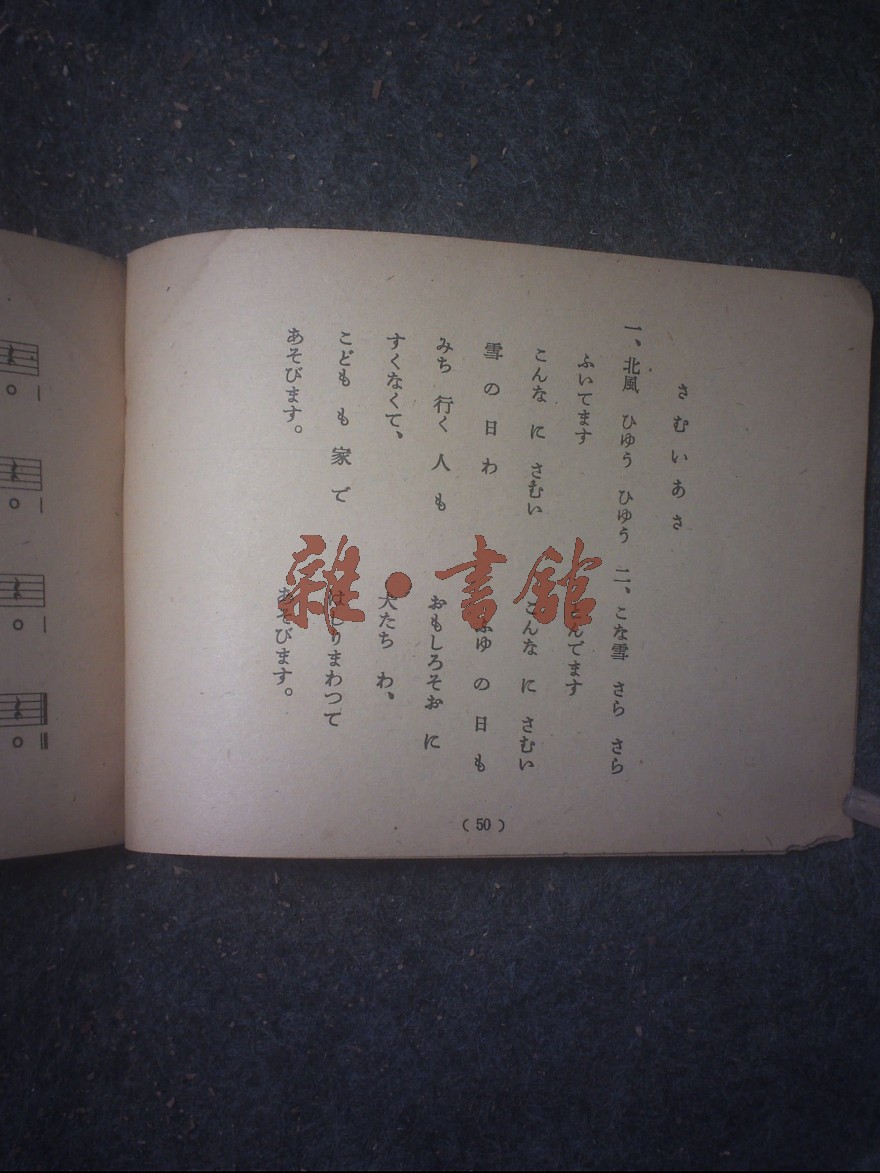 さむいあさ
一、北風 ひゆう ひゆう
ふいてます
こんな に さむい
雪 の 日 わ
みち 行く 人 も
すくなくて、
こども も 家 で
あそびます。
二、こな雪 さら さら
んでます
こんな に さむい
ふゆ の 日 も
おもしろそお に
犬たち わ、
はしりまわつて
あそびます。
(50)
雑・書館